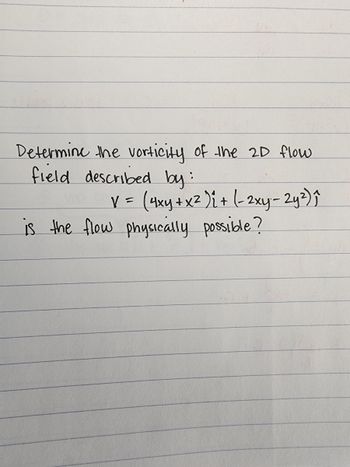 Determine the vorticity of the 2D flow
field described by:
V = (4xy + x²)î + (-2xy - 2y²)ĵ
is the flow physically possible?